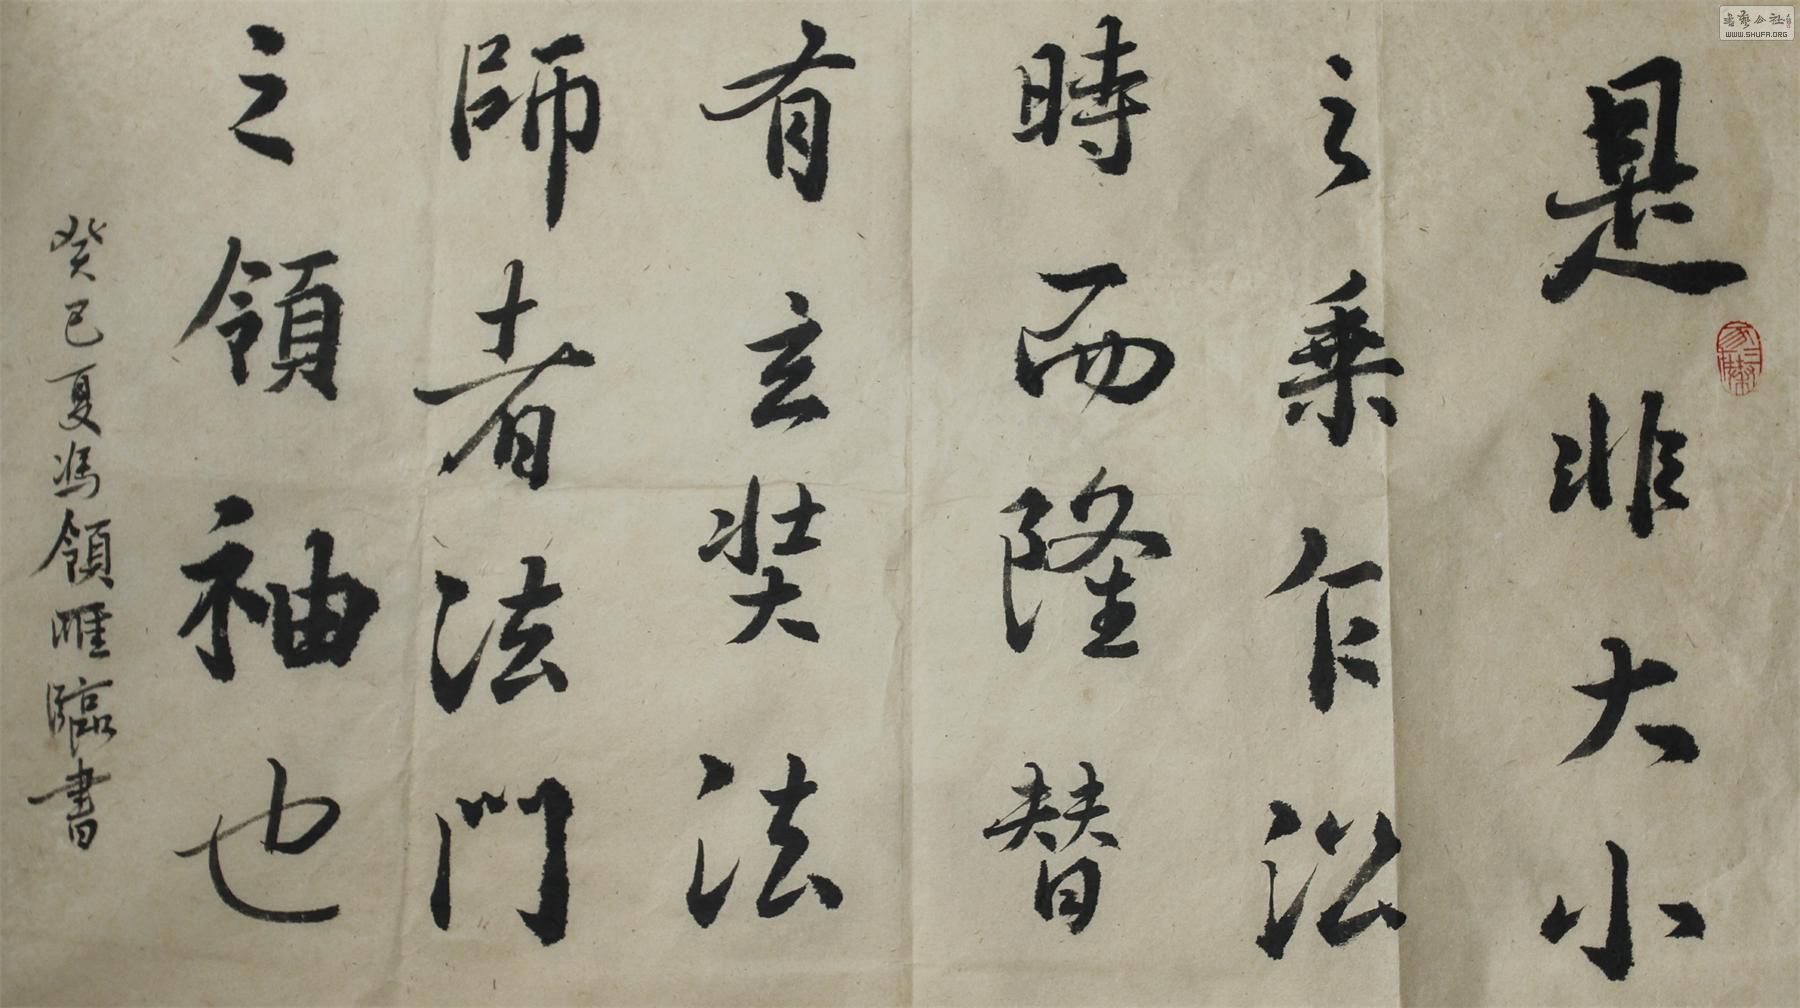 是非大小
之乘乍沿
時而隆替
有玄奘法
師者法門
之領袖也
癸巳夏馮領雁臨書
書藝公社
WWW.SHUFA.ORG